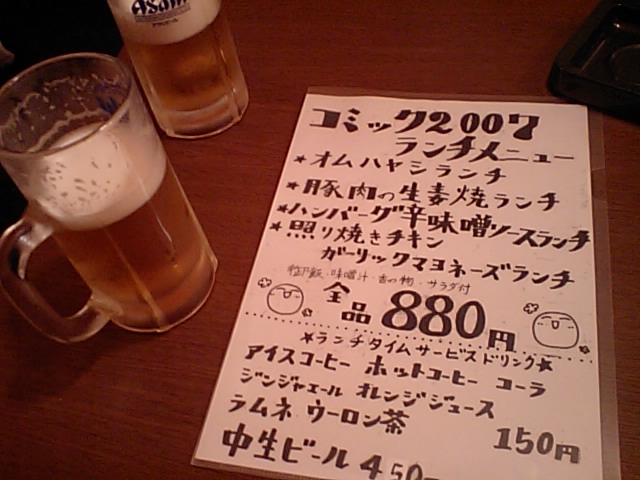 Asahi
コミック2007
ランチメニュー
★オムハヤシランチ
★豚肉の生姜焼ランチ
★ハンバーグ辛味噌ソースランチ
★照り焼きチキン
ガーリックマヨネーズランチ
御飯・味噌汁・香の物・サラダ付
全品880円
★ランチタイムサービスドリンク★
アイスコーヒー ホットコーヒー コーラ
ジンジャエール オレンジジュース
ラムネ ウーロン茶
150円
中生ビール 450